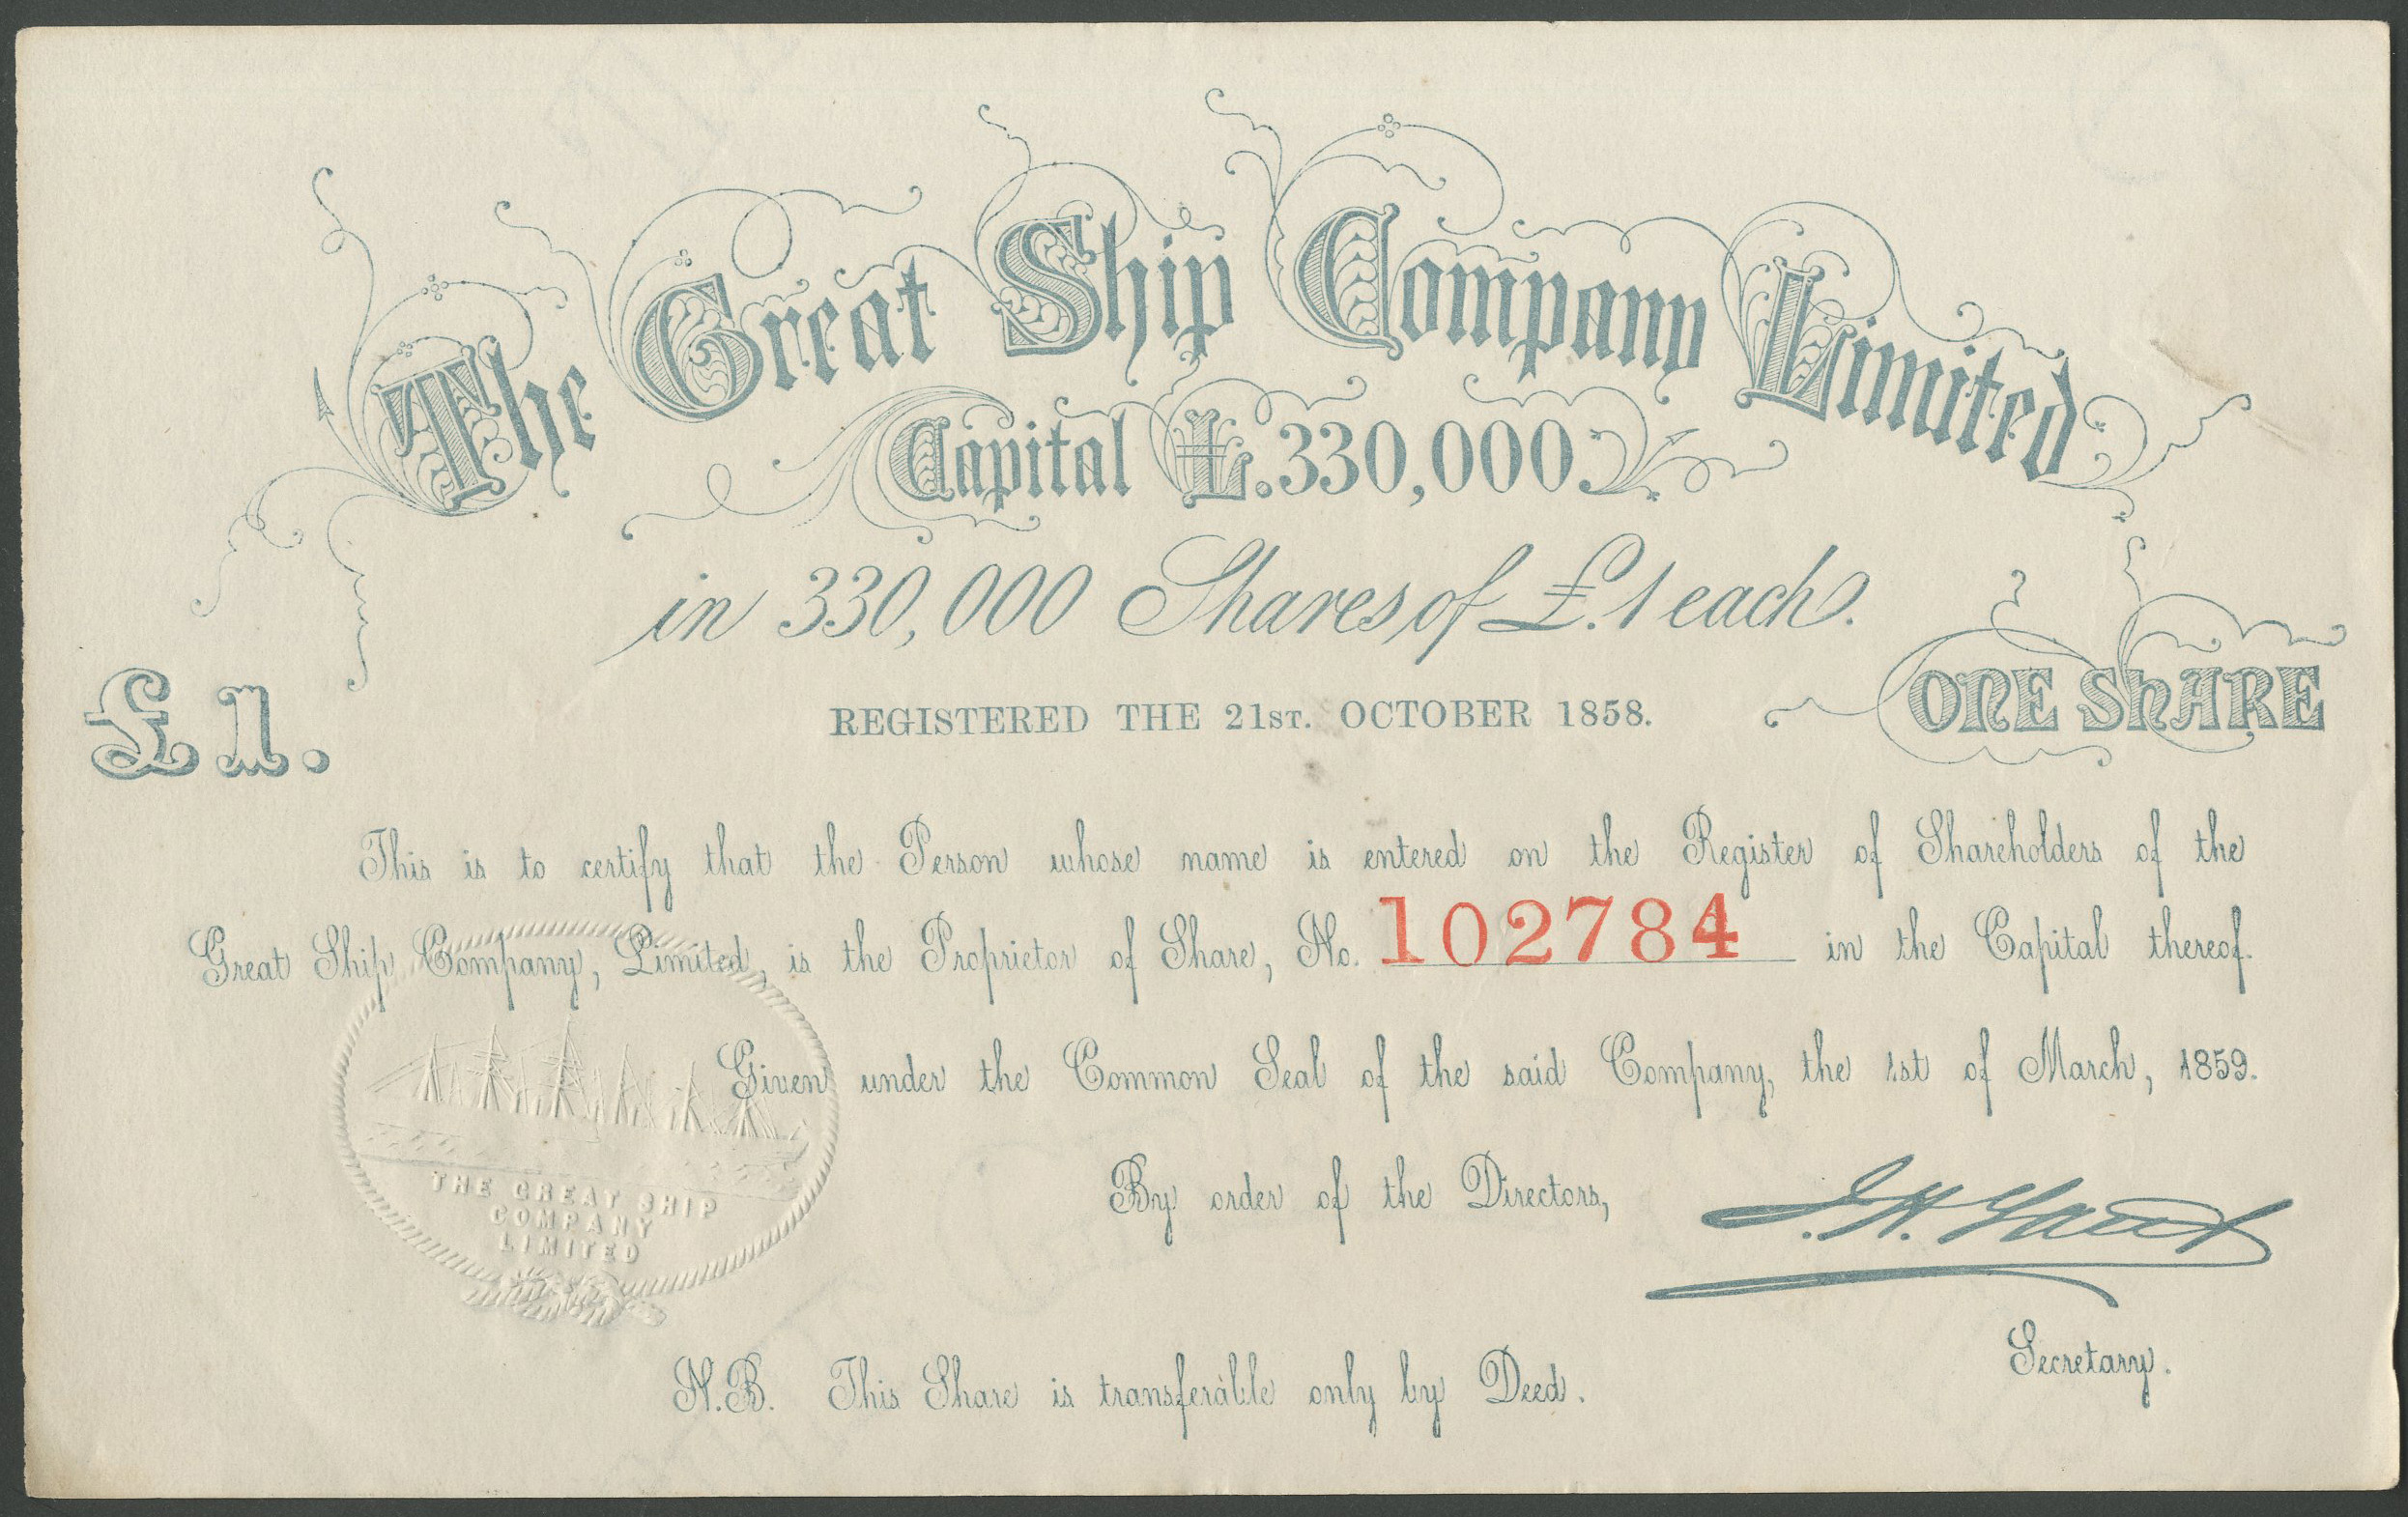 The Great Ship Company Limited
Capital £.330,000.
in 330,000 Shares of £.1 each.
£1.
REGISTERED THE 21ST. OCTOBER 1858.
ONE SHARE
This is to certify that the Person whose name is entered on the Register of Shareholders of the
Great Ship Company, Limited, is the Proprietor of Share, No. 102784 in the Capital thereof.
Given under the Common Seal of the said Company, the 1st of March, 1859.
THE GREAT SHIP
COMPANY
LIMITED
By order of the Directors,
J. H. Yates
Secretary.
N.B. This Share is transferable only by Deed.